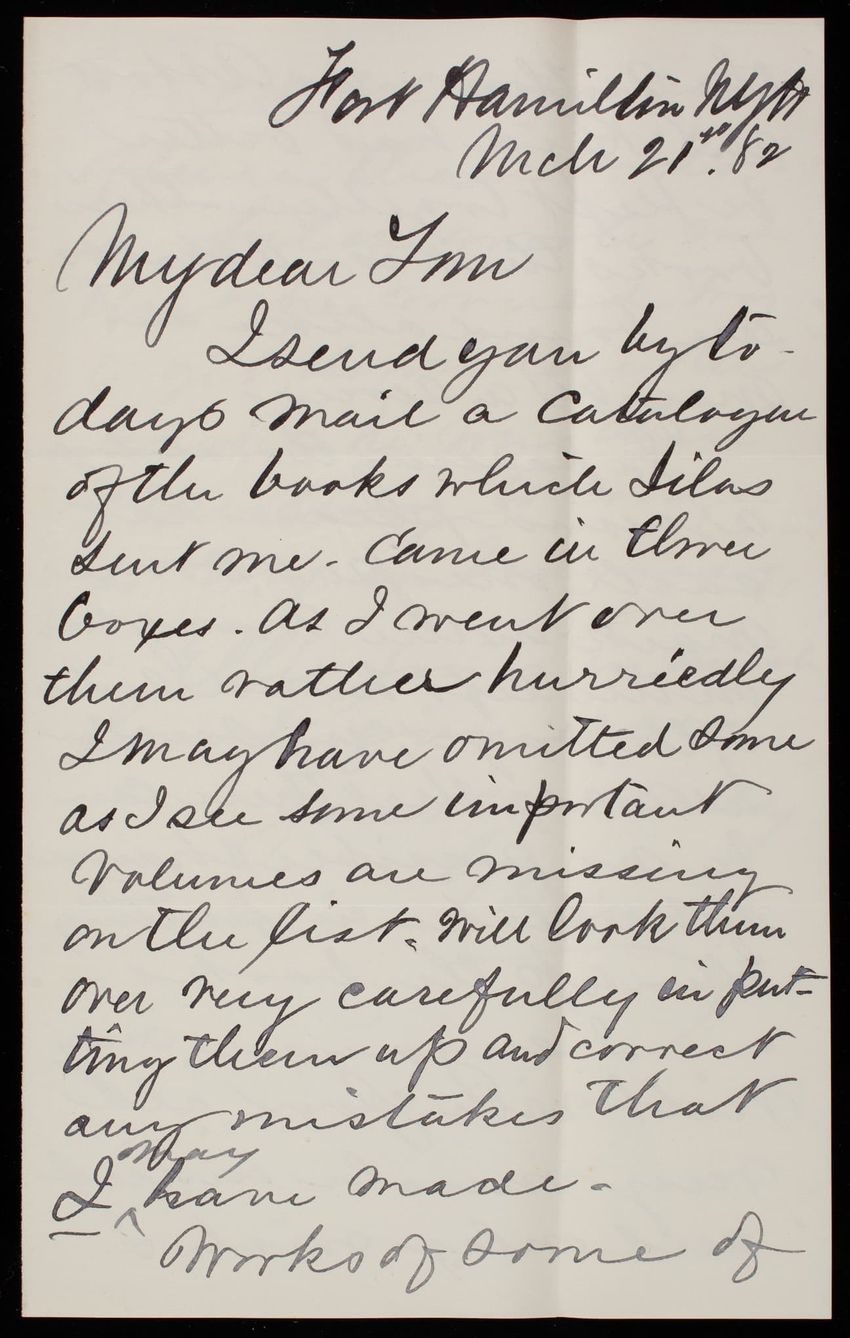 Fort Hamilton NYH
Mch 21st. 82
My dear Tom
I send you by to-
days mail a Catalogue
of the books which Silas
sent me. Came in three
boxes. As I went over
them rather hurriedly
I may have omitted some
as I see some important
volumes are missing
on the list. Will look them
over very carefully in put-
ting them up and correct
any mistakes that
I may have made.
Works of some of